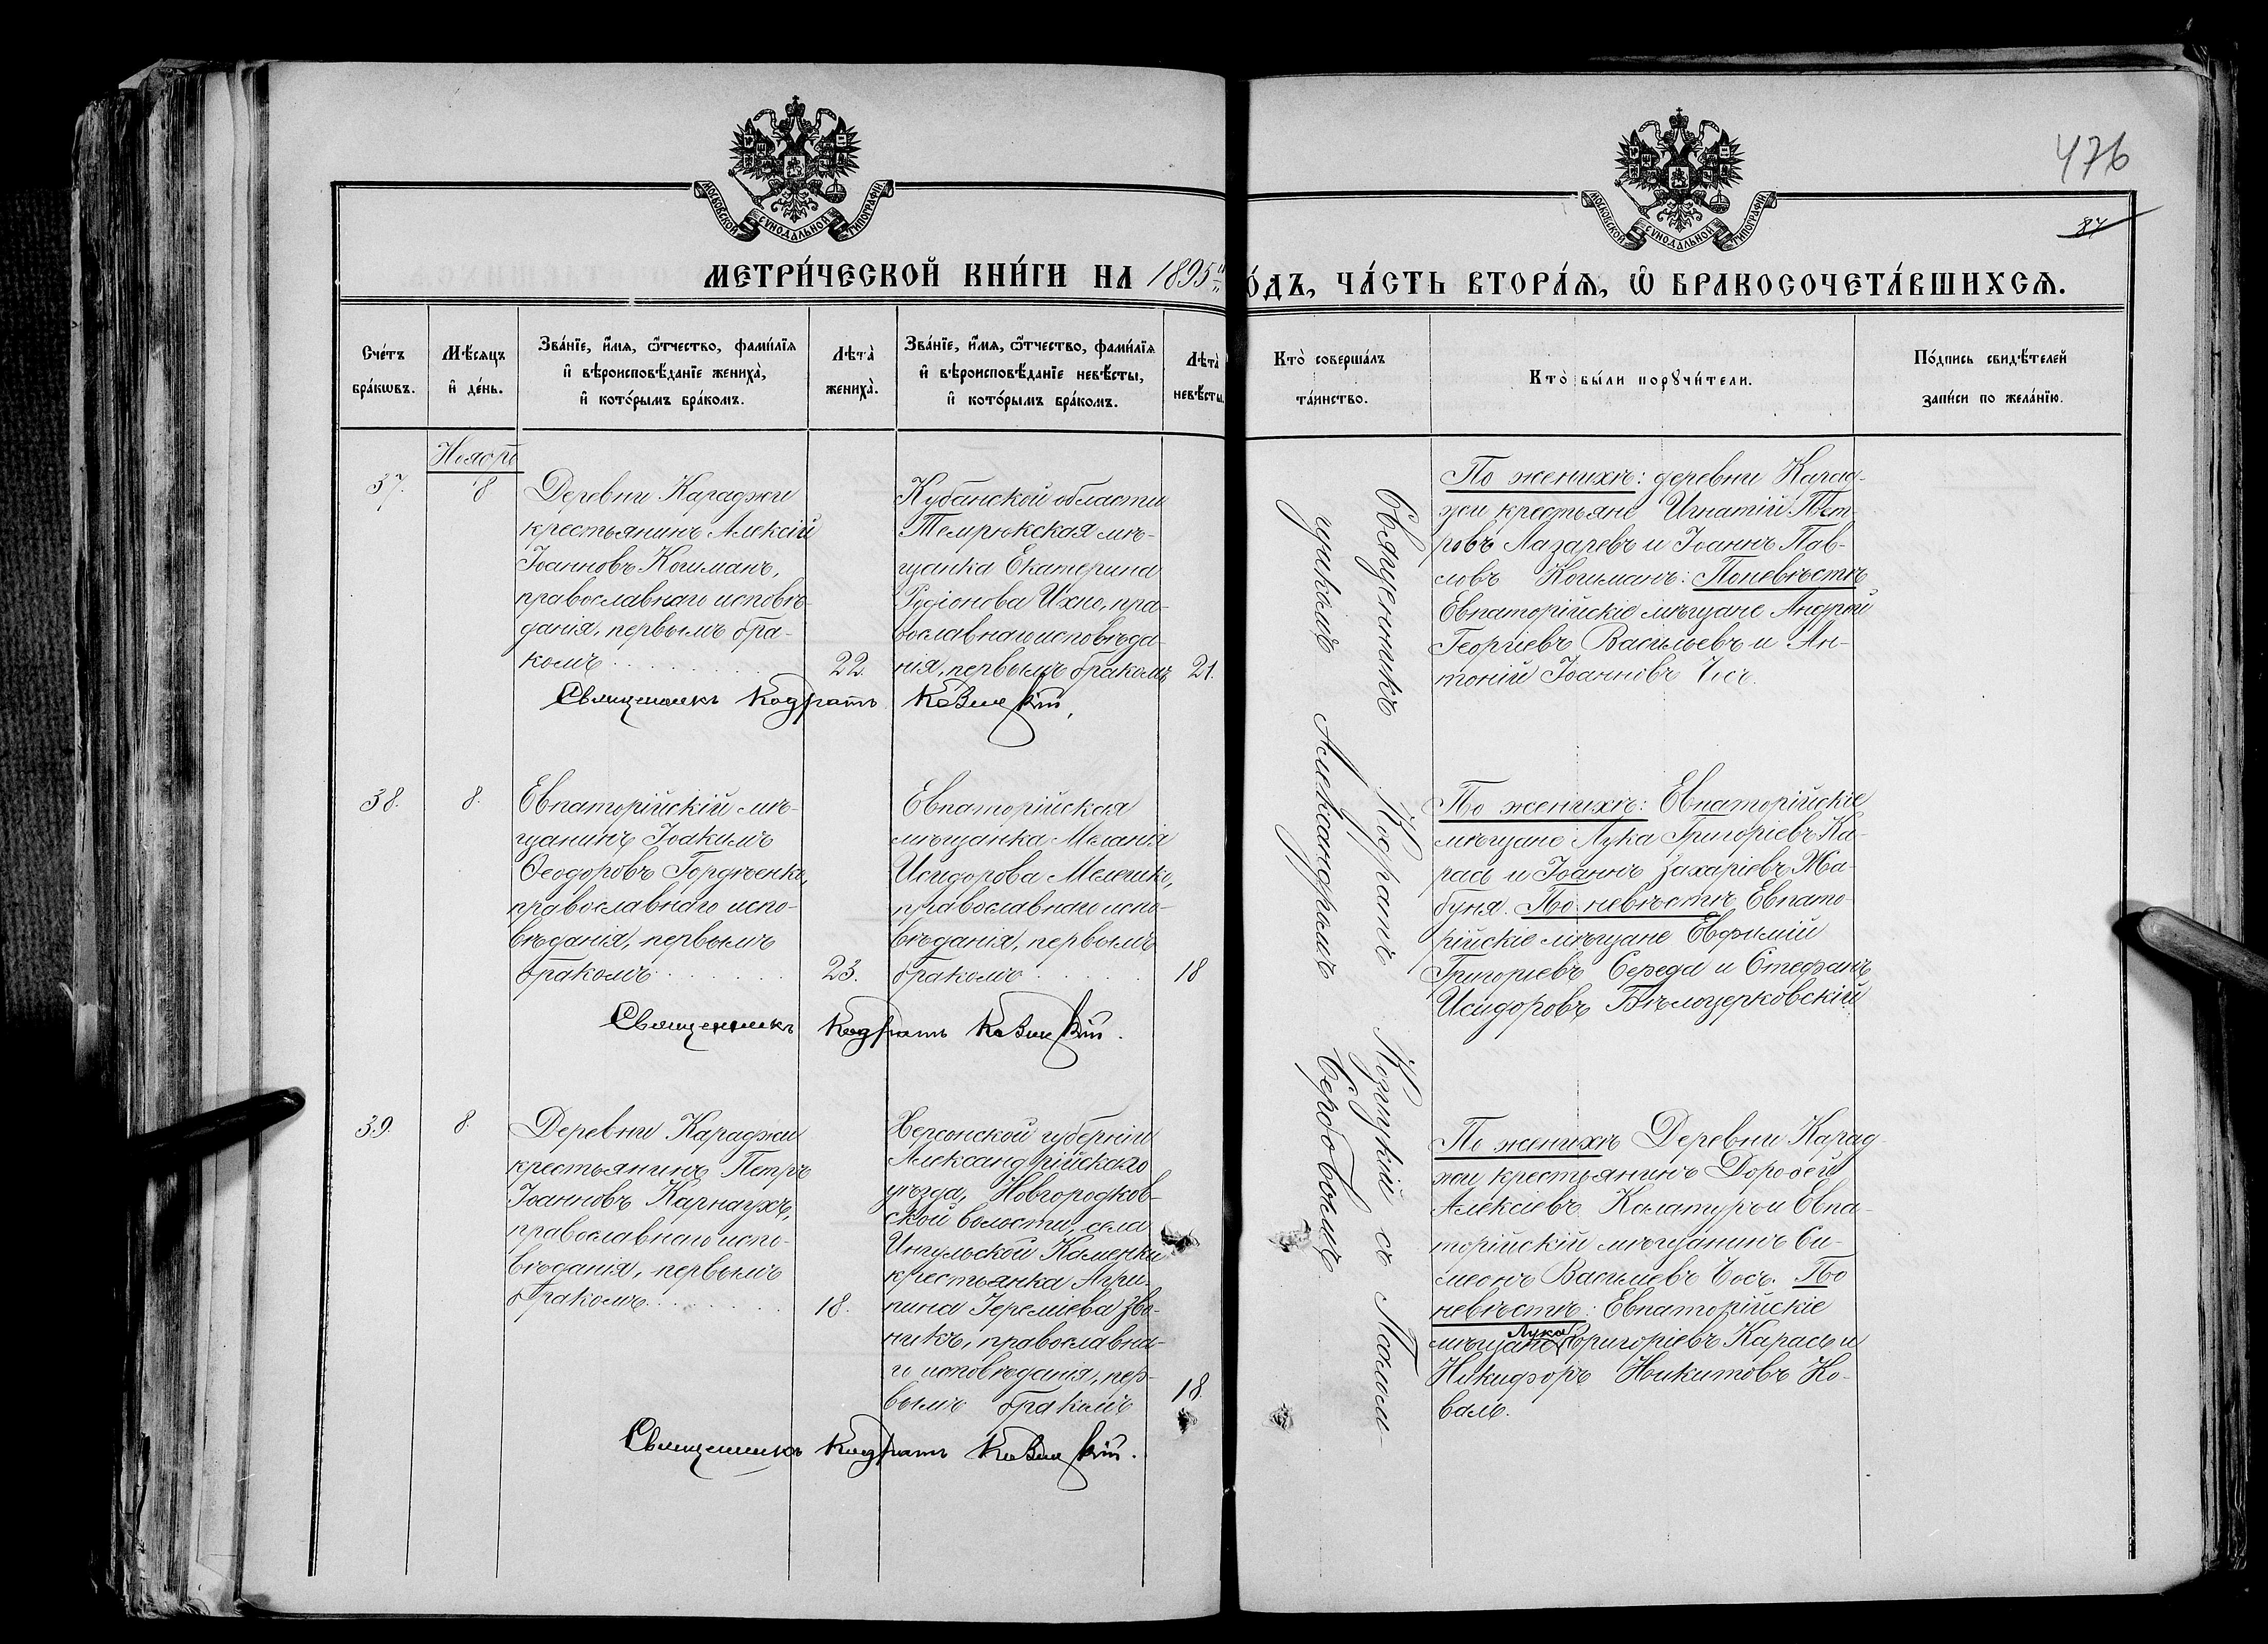 476
87
МОСКОВСКОЙ СУНОДАЛЬНОЙ ТИПОГРАФІИ
МОСКОВСКОЙ СУНОДАЛЬНОЙ ТИПОГРАФІИ
МЕТРИ́ЧЕСКОЙ КНИ́ГИ НА 1895й
О́ДЪ, ЧА́СТЬ ВТОРА́Ѧ, Ѿ БРАКОСОЧЕТА́ВШИХСѦ.
Сче́тъ
бра́кѡвъ.
Мѣ́сяцъ
и҆ де́нь.
Зва́нїе, и҆́мѧ, ѻ҆́тчество, фами́лїѧ
и҆ вѣроисповѣ́данїе жениха̀,
и҆ кото́рымъ бра́комъ.
Лѣта̀
жениха̀.
Зва́нїе, и҆́мѧ, ѻ҆́тчество, фами́лїѧ
и҆ вѣроисповѣ́данїе невѣ́сты,
и҆ кото́рымъ бра́комъ.
Лѣта̀
невѣ́сты.
Кто̀ соверша́лъ
та́инство.
Кто̀ бы́ли порꙋчи́тели.
По́дпись свидѣ́телей
за́писи по жела́нїю.
Ноябрь
37.
8
Деревни Караджи
крестьянинъ Алексій
Іоанновъ Кошманъ,
православнаго исповѣ-
данія, первымъ бра-
комъ
22.
Кубанской области
Темрюкская мѣ-
щанка Екатерина
Родіонова Ихно, пра-
вославнаго исповѣда-
нія, первымъ бракомъ
21.
Священникъ Кодратъ
Священникъ Кодратъ
Александромъ
По женихѣ: деревни Карад-
жи крестьяне Игнатій Пет-
ровъ Лазаревъ и Іоаннъ Пав-
ловъ Кошманъ: По невѣстѣ
Евпаторійскіе мѣщане Андрей
Георгіевъ Васильевъ и Ан-
тоній Іоанновъ
38.
8.
Евпаторійскій мѣ-
щанинъ Іоакимъ
Ѳеодоровъ Гордѣенко,
православнаго испо-
вѣданія, первымъ
бракомъ
23.
Евпаторійская
мѣщанка Меланія
Исидорова Мелешко,
православнаго испо-
вѣданія, первымъ
бракомъ
18
Священникъ Кодратъ
По женихѣ: Евпаторійскіе
мѣщане Лука Григоріевъ Ка-
рась и Іоаннъ Захаріевъ Жа-
буня. По невѣстѣ Евпато-
рійскіе мѣщане Евфимій
Григоріевъ Середа и Стефанъ
Исидоровъ Бѣлоцерковскій
39.
8.
Деревни Караджи
крестьянинъ Петръ
Іоанновъ Карнаухъ,
православнаго испо-
вѣданія, первымъ
бракомъ
18.
Херсонской губерніи
Александрійскаго
уѣзда, Новгородков-
ской волости, села
Ингульской Каменки
крестьянка Агри-
пина Іереміева Зво-
никъ, православна-
го исповѣданія, пер-
вымъ бракомъ
18.
Священникъ Кодратъ
По женихѣ Деревни Карад-
жи крестьянинъ Дороѳей
Алексіевъ Калатуръ и Евпа-
торійскій мѣщанинъ Си-
меонъ Васильевъ По
невѣстѣ: Евпаторійскіе
мѣщане Лука Григоріевъ Карась и
Никифоръ Никитовъ Ко-
валь.